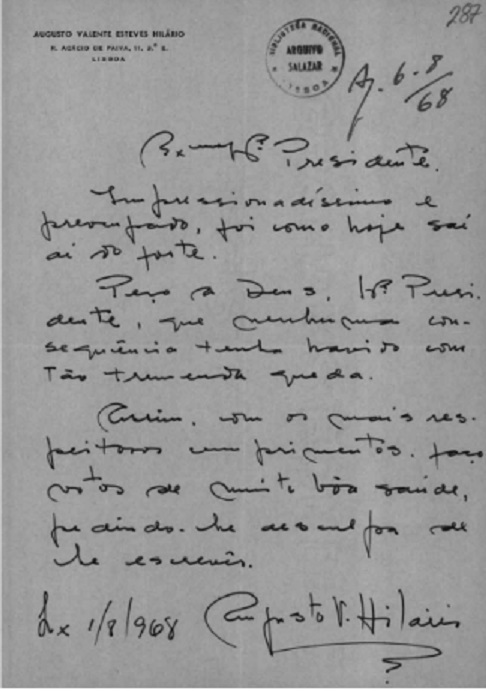 287
AUGUSTO VALENTE ESTEVES HILÁRIO
R. ACÁCIO DE PAIVA, 11, 2.º E.
LISBOA
BIBLIOTECA NACIONAL
ARQUIVO
SALAZAR
LISBOA
6-8
68
Exmo Sr. Presidente.
Impressionadíssimo e
preocupado, foi como hoje saí
aí do forte.
Peço a Deus, Sr. Presi-
dente, que nenhuma con-
sequência tenha havido com
tão tremenda queda.
Assim, com os mais res-
peitosos cumprimentos, faço
votos de muito bôa saúde,
pedindo-lhe desculpa de
lhe escrever.
Lx 1/8/968 Augusto V. Hilário